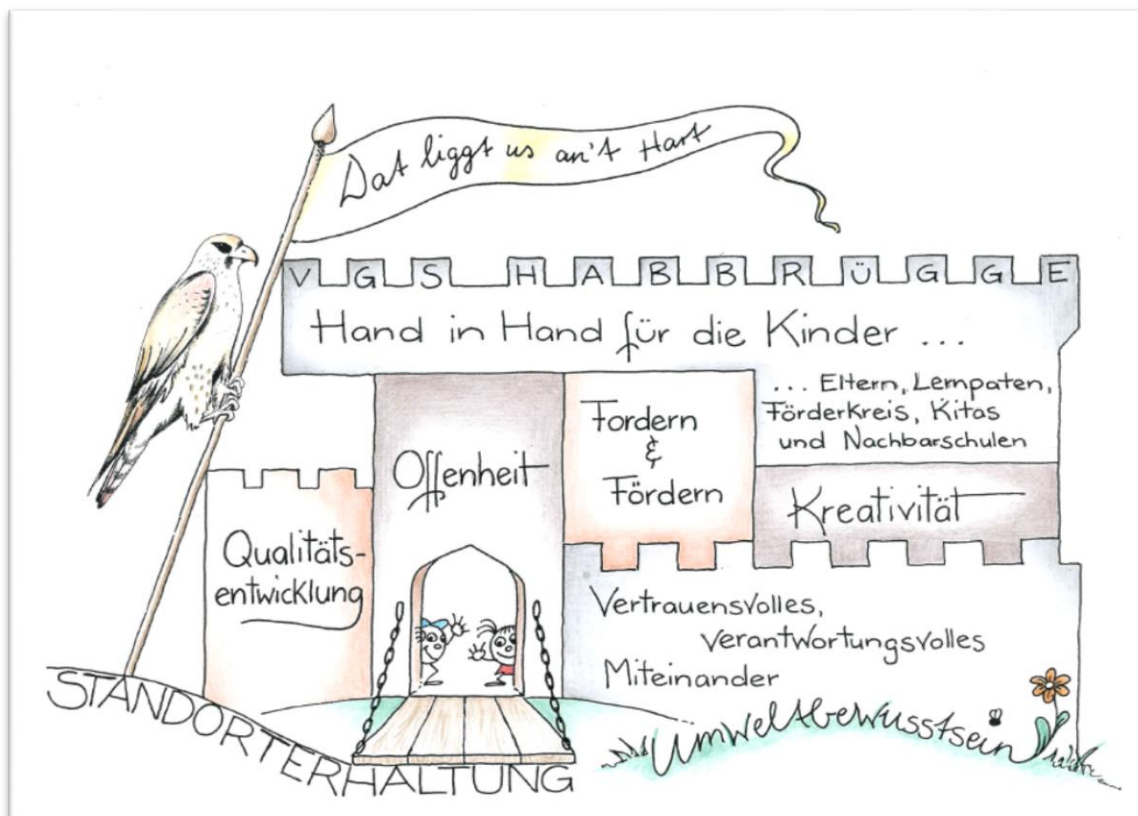 Dat liggt us an't Hart
VGS HABBRÜGGE
Hand in Hand für die Kinder ...
... Eltern, Lernpaten,
Förderkreis, Kitas
und Nachbarschulen
Fordern
&
Fördern
Offenheit
Kreativität
Qualitäts-
entwicklung
Vertrauensvolles,
Verantwortungsvolles
Miteinander
Umweltbewusstsein
STANDORTERHALTUNG